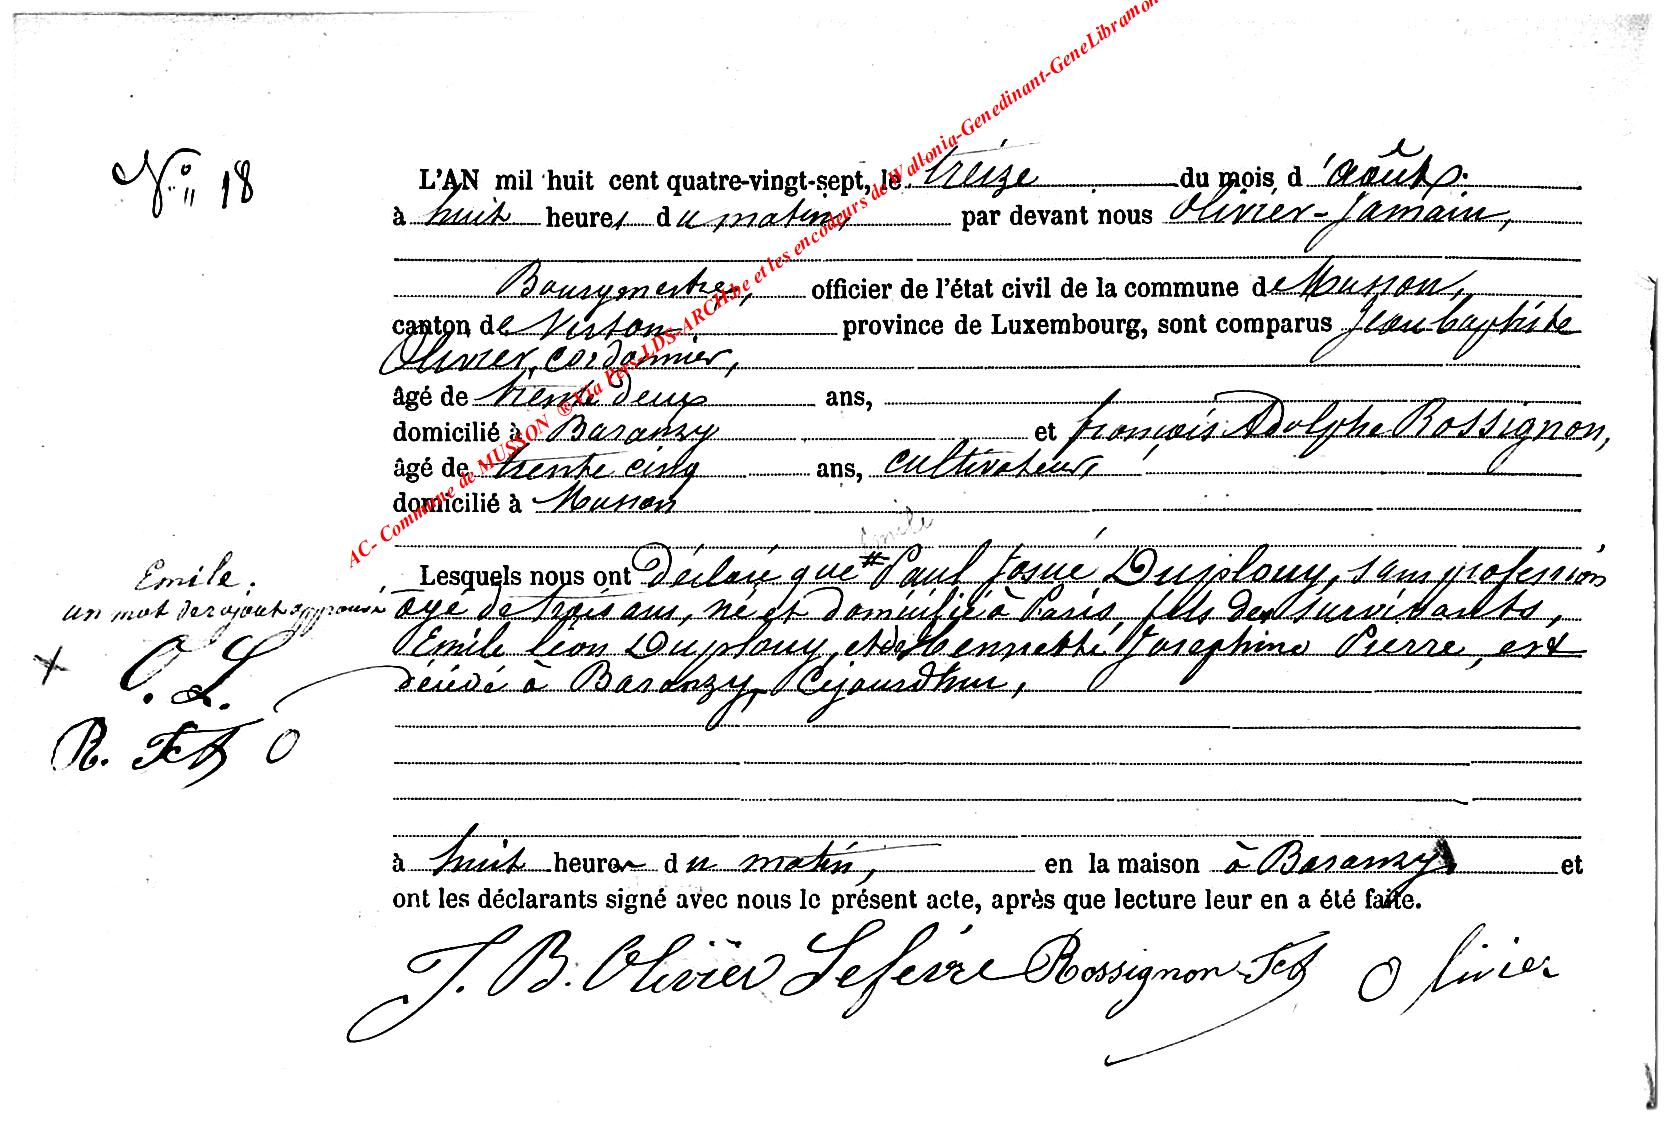 N° 18
L'AN mil huit cent quatre-vingt-sept, le treize du mois d'août
à huit heures du matin, par devant nous Olivier-Jamain,
Bourgmestre, officier de l'état civil de la commune de Musson,
canton de Virton province de Luxembourg, sont comparus Jean baptiste
Olivier, cordonnier,
âgé de trente deux ans,
domicilié à Baranzy et françois Adolphe Rossignon,
âgé de trente cinq ans, cultivateur,
domicilié à Musson
Emile
Lesquels nous ont déclaré que # Paul Josué Duplouy, sans profession
âgé de trois ans, né et domicilié à Paris, fils des survivants,
Emile léon Duplouy, et de Henriette Joséphine Pierre, est
décédé à Baranzy, Cejourd'hui,
Emile.
un mot de rajout approuvé
O. L.
R. Fçs O
à huit heures du matin, en la maison à Baranzy et
ont les déclarants signé avec nous le présent acte, après que lecture leur en a été faite.
J. B. Olivier Lefèvre Rossignon Fçs Olivier
AC- Commune de MUSSON ® Via Pers-LDS-ARCH.be et les encodeurs de Wallonia-Genedinant-GeneLibramon